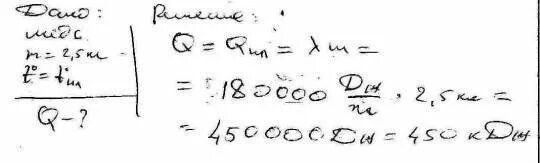 Дано:
медь
m = 2,5 кг
t° = t°пл
Q – ?
Решение:
Q = Qпл = λm =
= 180000 Дж/кг · 2,5 кг =
= 450000 Дж = 450 кДж